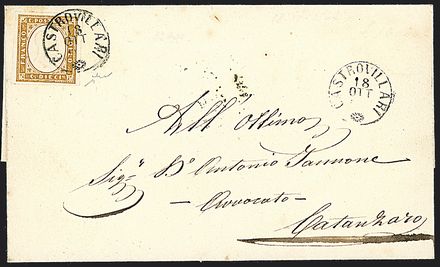 FRANCO POSTE
C. DIECI
CASTROVILLARI
18
OTT
CASTROVILLARI
18
OTT
All' Ottimo
Sig.r D.n Antonio Iannone
- Avvocato -
Catanzaro